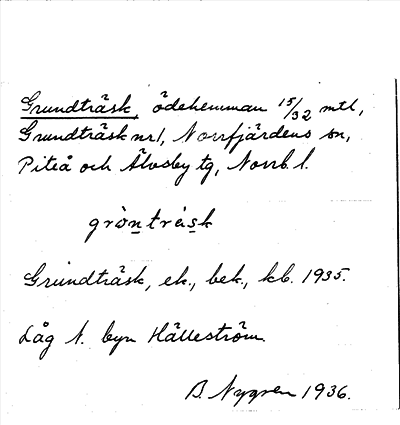 Grundträsk, ödehemman 15/32 mtl,
Grundträsk nr1, Norrfjärdens sn,
Piteå och Älvsby tg, Norrb. l.
gròntrásk
Grundträsk, ek., bek., kb. 1935.
Låg t. byn Hälleström.
B. Nygren 1936.